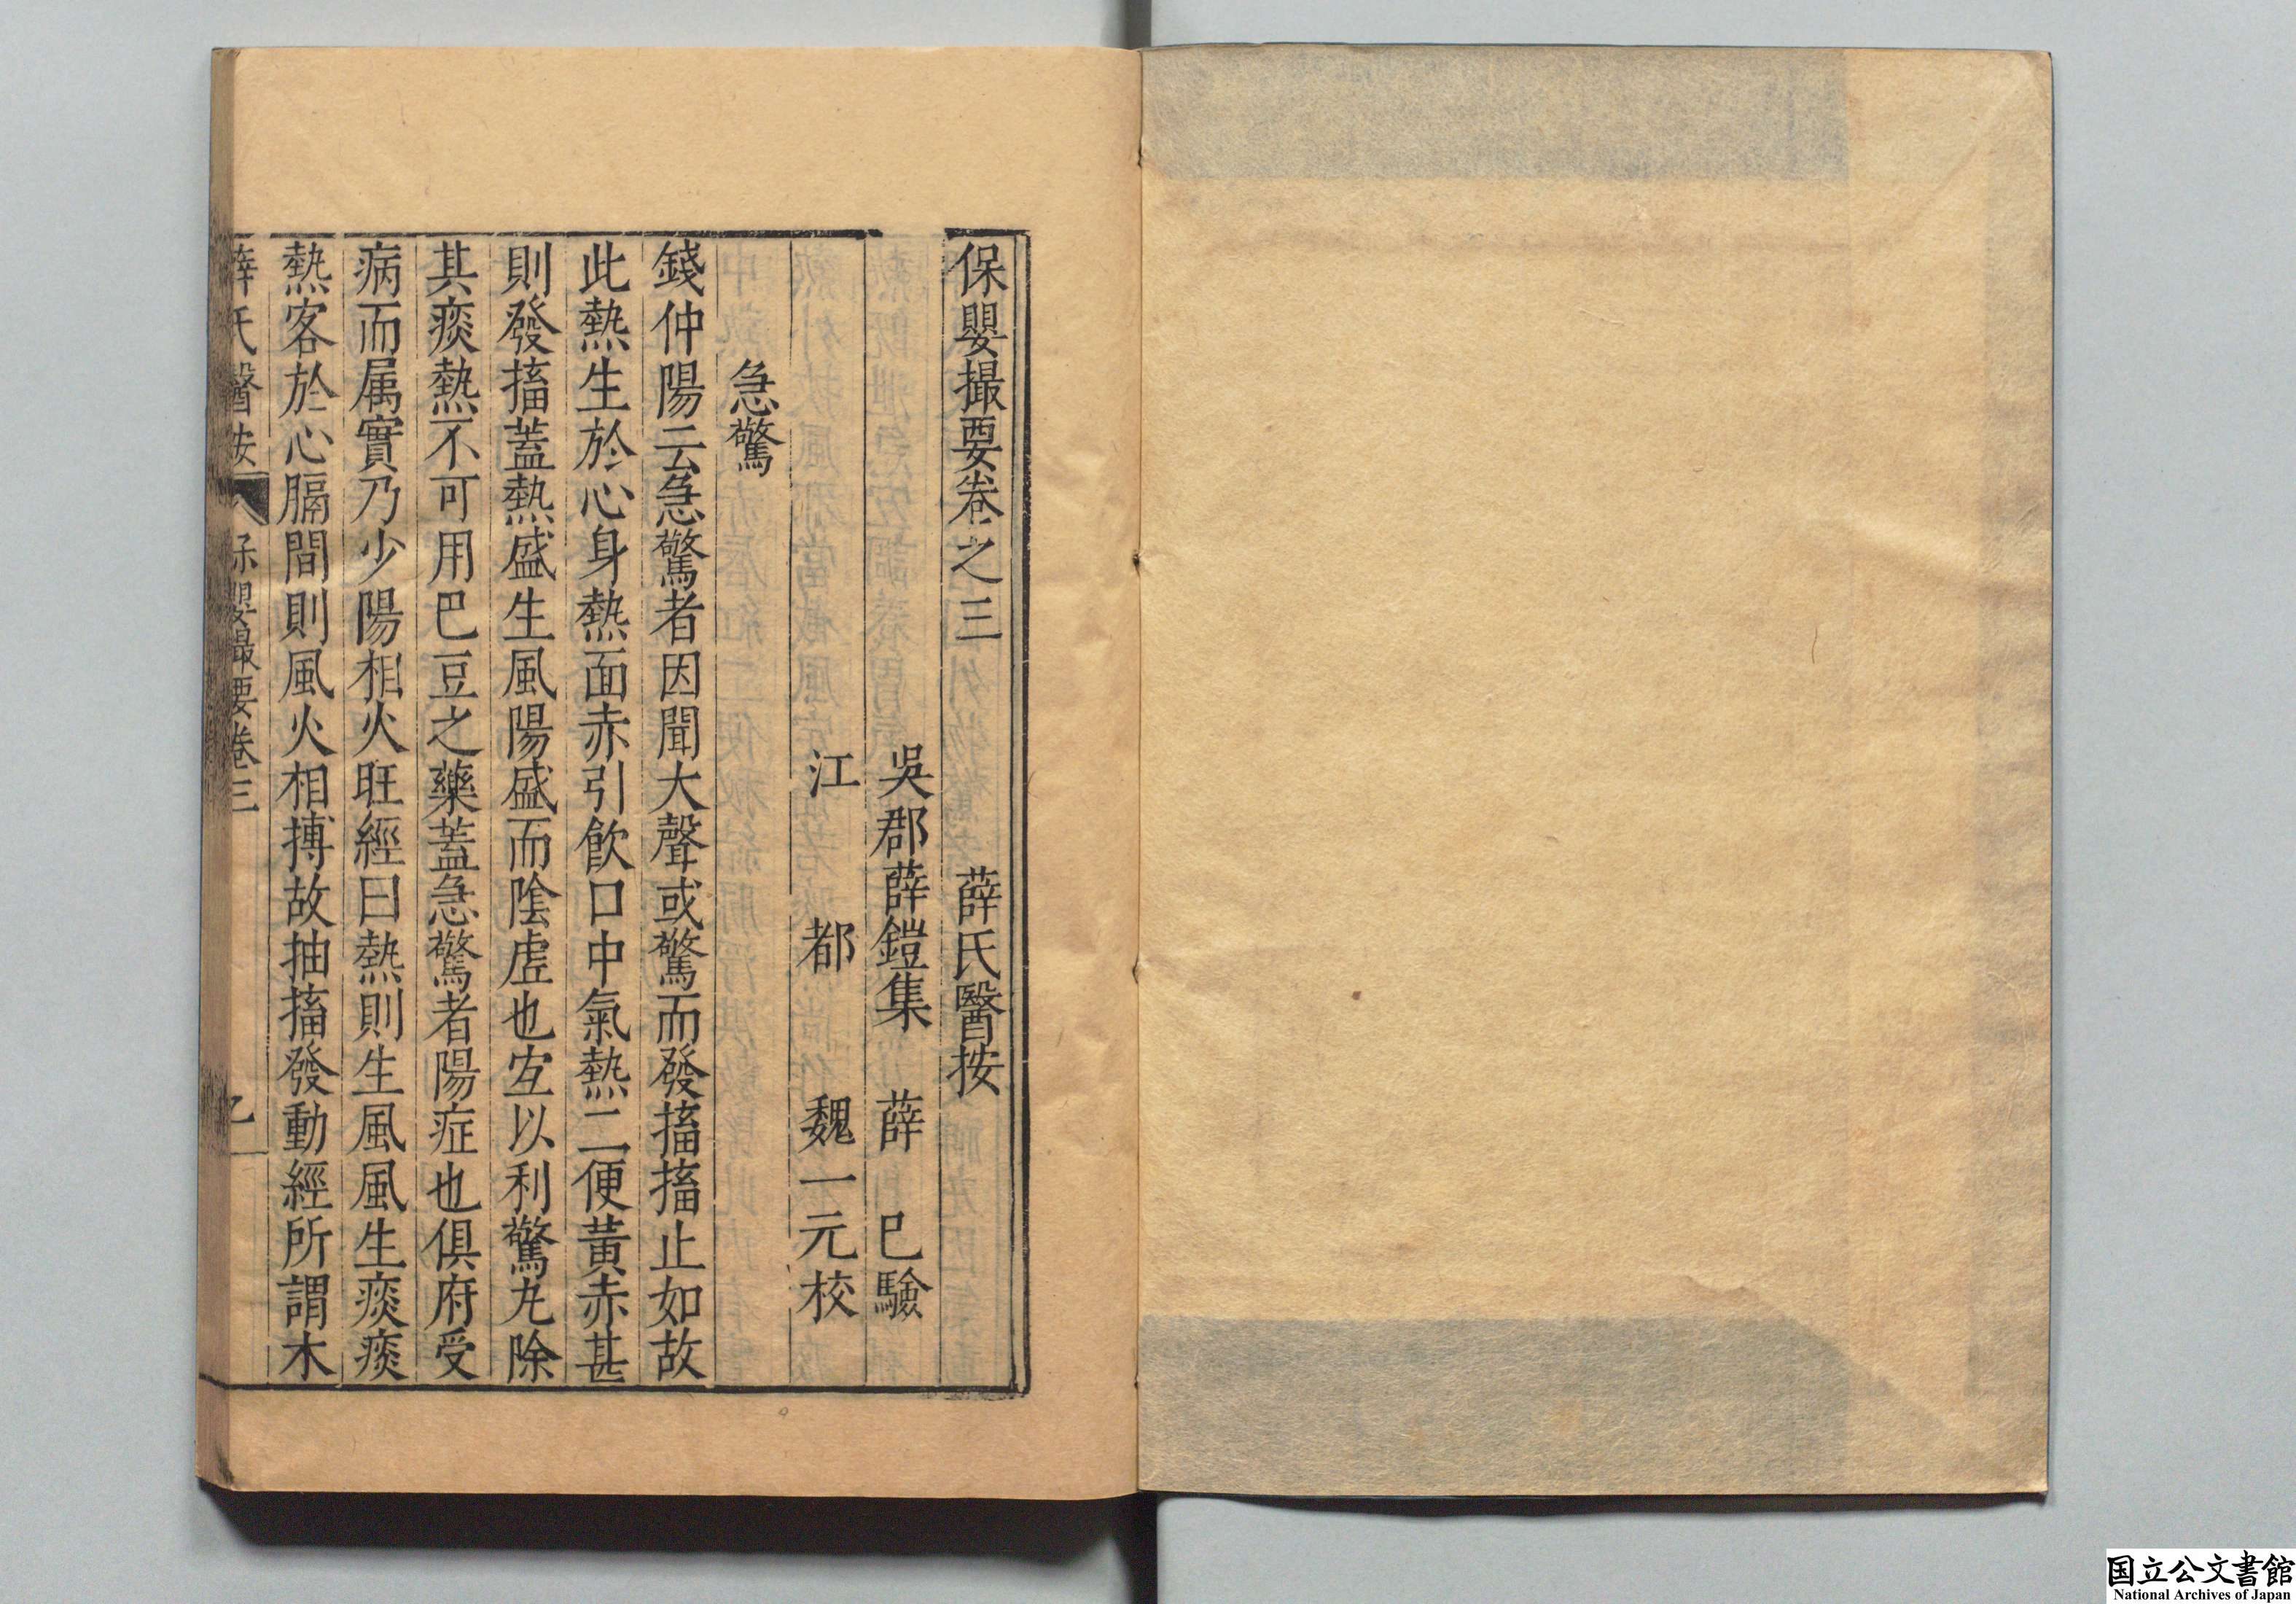 保嬰撮要卷之三　薛氏醫按
吳郡薛鎧集　薛　已驗
江　都　魏一元校
急驚
錢仲陽云急驚者因聞大聲或驚而發搐搐止如故
此熱生於心身熱面赤引飲口中氣熱二便黃赤甚
則發搐蓋熱盛生風陽盛而陰虛也宜以利驚丸除
其痰熱不可用巴豆之藥蓋急驚者陽症也俱府受
病而属實乃少陽相火旺經曰熱則生風風生痰痰
熱客於心膈間則風火相搏故抽搐發動經所謂木
薛氏醫按　保嬰撮要卷三
国立公文書館
National Archives of Japan